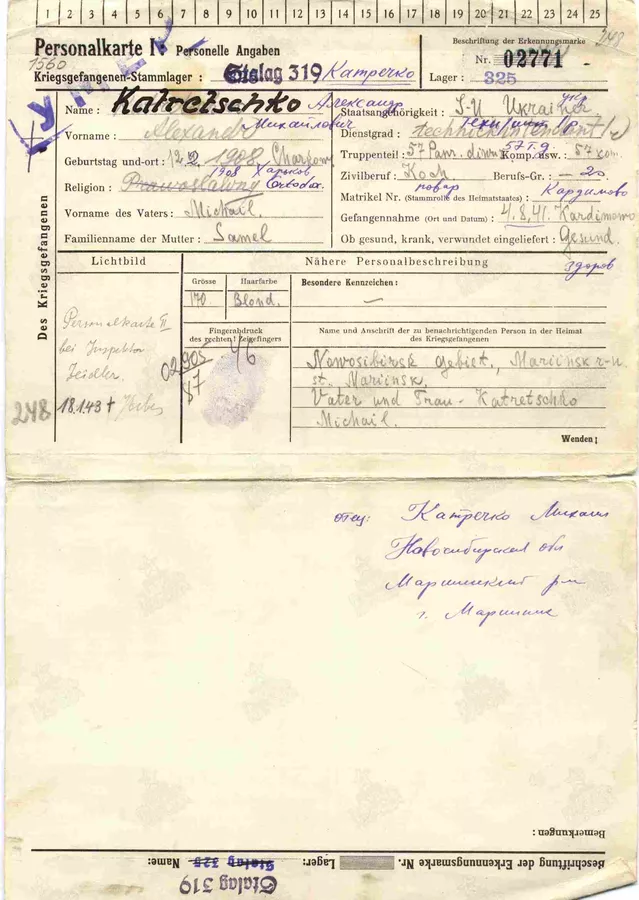 1 2 3 4 5 6 7 8 9 10 11 12 13 14 15 16 17 18 19 20 21 22 23 24 25
Personalkarte I: Personelle Angaben
Beschriftung der Erkennungsmarke
248
1560
Nr. 02771
Kriegsgefangenen-Stammlager: Stalag 319 Катречко
Lager: 325
УМЕР
Des Kriegsgefangenen
Name: Katretschko Александр
Staatsangehörigkeit: S-U Ukrainer укр
Vorname: Alexandr Михайлович
Dienstgrad:
Geburtstag und -ort: 12.2.1908, Charkow
Truppenteil: 57 Panz. 57 Т.д. Komp. usw.: 57
1908 Харьков
Zivilberuf: Koch Berufs-Gr.: — 20.
повар
Religion: Prawoslawny Ortodox.
Matrikel Nr. (Stammrolle des Heimatstaates): Кардимово
Vorname des Vaters: Michail.
Gefangennahme (Ort und Datum): 4.8.41. Kardimowo
Familienname der Mutter: Samel
Ob gesund, krank, verwundet eingeliefert: Gesund.
здоров
Lichtbild
Nähere Personalbeschreibung
Grösse Haarfarbe Besondere Kennzeichen:
170. Blond. —
Fingerabdruck des rechten! Zeigefingers
Name und Anschrift der zu benachrichtigenden Person in der Heimat des Kriegsgefangenen
Personalkarte II
bei Inspektor
Zeidler.
02905 46
87
248
18.1.43 †
Nowosibirsk gebiet, Mariinsk r-n.
st. Mariinsk.
Vater und Frau - Katretschko
Michail.
Wenden!
отец: Катречко Михаил
Новосибирская обл
Мариинский р-н
г. Мариинск
Bemerkungen:
Beschriftung der Erkennungsmarke Nr. Lager: Stalag 325 Name:
Stalag 319